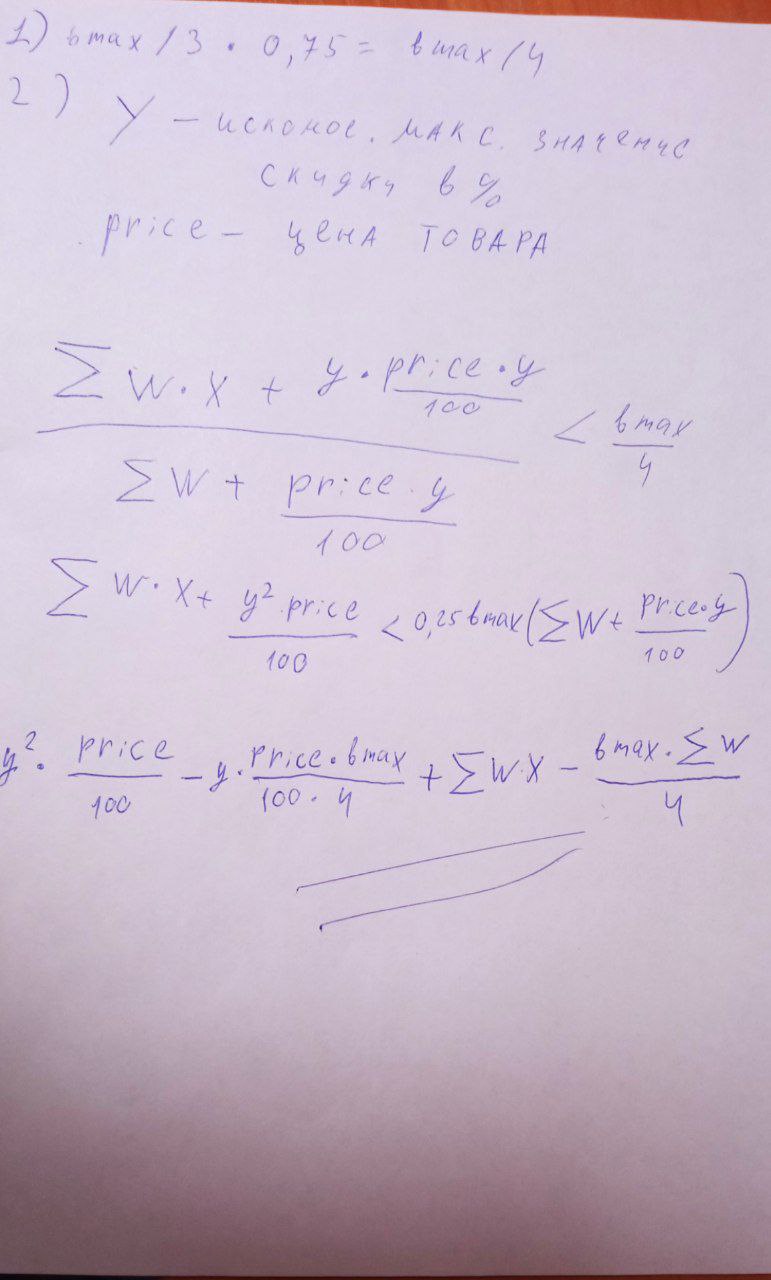 1) bmax / 3 · 0,75 = bmax / 4
2) Y – искомое. макс. значение
скидки в %
price – цена товара
∑ W · X + y · price · y / 100
< bmax / 4
∑ W + price · y / 100
∑ W · X + y² · price / 100 < 0,25 bmax (∑ W + price · y / 100)
y² · price / 100 – y · price · bmax / 100 · 4 + ∑ W · X – bmax · ∑ W / 4